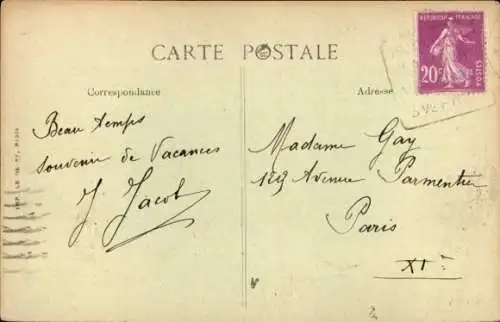 CARTE POSTALE
Correspondance
Beau temps
souvenir de Vacances
J. Jacob
Adresse
Madame Gay
Avenue Parmentier
Paris
XIe
REPUBLIQUE FRANÇAISE
20c
POSTES